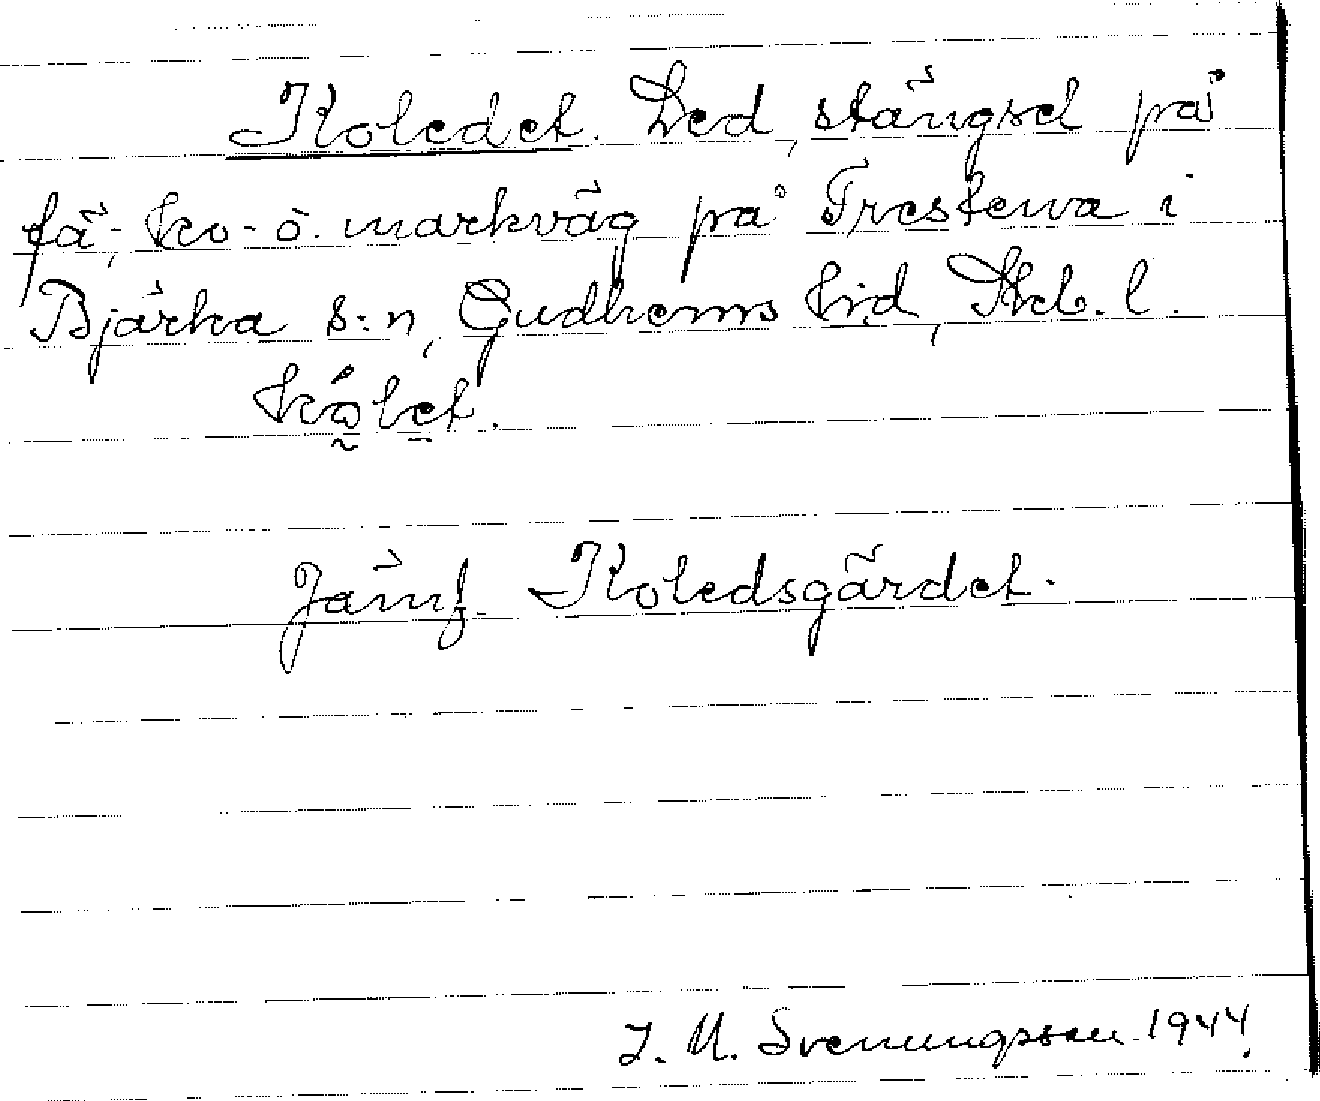 Koledet. Led, stängsel på
fä-, ko- o. markväg på Trestena i
Bjärka s:n, Gudhems hd, Skb. l.
Jämf. Koledsgärdet.
J. M. Svenungsson 1944.